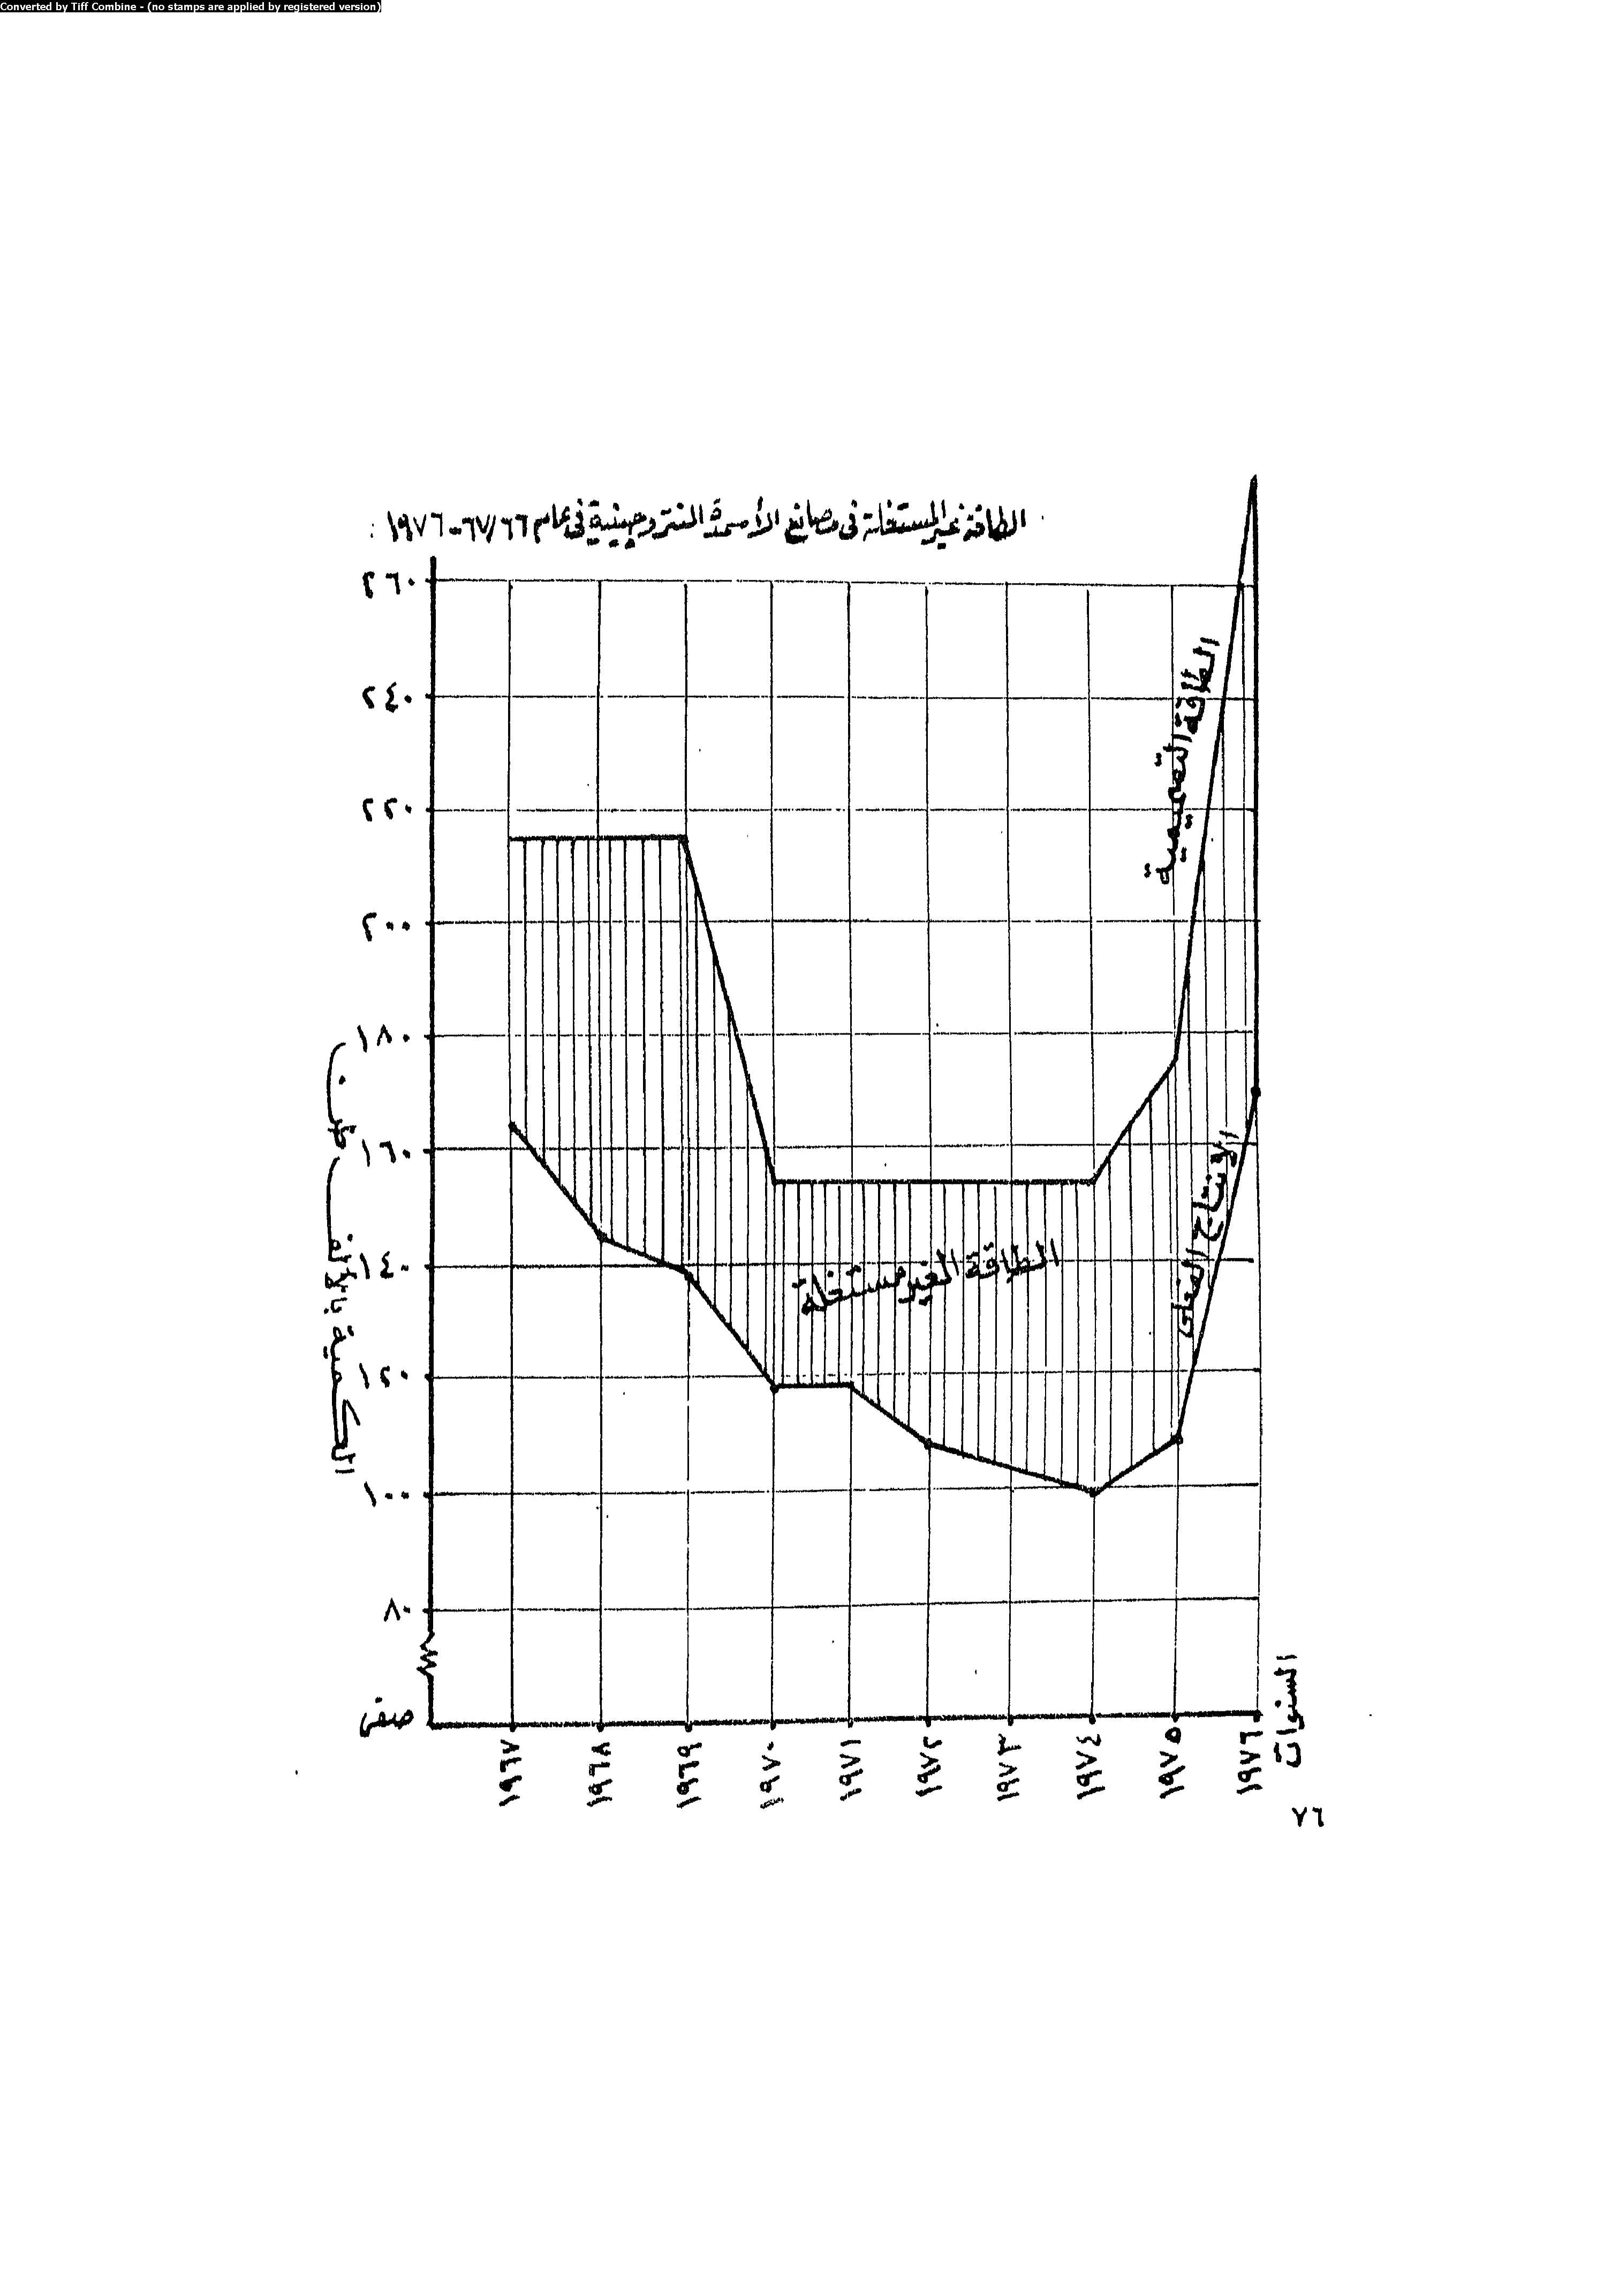 Converted by Tiff Combine - (no stamps are applied by registered version)
الطاقة غير المستغلة فى مصانع الأسمدة النتروجينية فى عام ٦٧/٦٦-١٩٧٦ :
٢٦٠
٢٤٠
٢٢٠
٢٠٠
١٨٠
١٦٠
١٤٠
١٢٠
١٠٠
٨٠
صفر
الكمية بالألف طن
الطاقة التصميمية
الانتاج الفعلى
الطاقة الغير مستغلة
١٩٦٧
١٩٦٨
١٩٦٩
١٩٧٠
١٩٧١
١٩٧٢
١٩٧٣
١٩٧٤
١٩٧٥
١٩٧٦
السنوات
٧٦